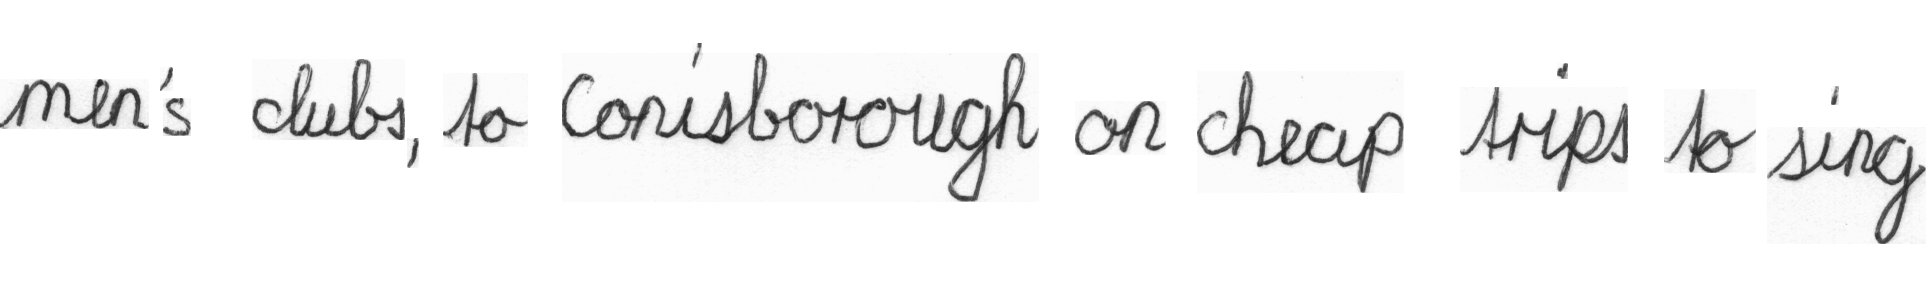 men's clubs, to Conisborough on cheap trips to sing